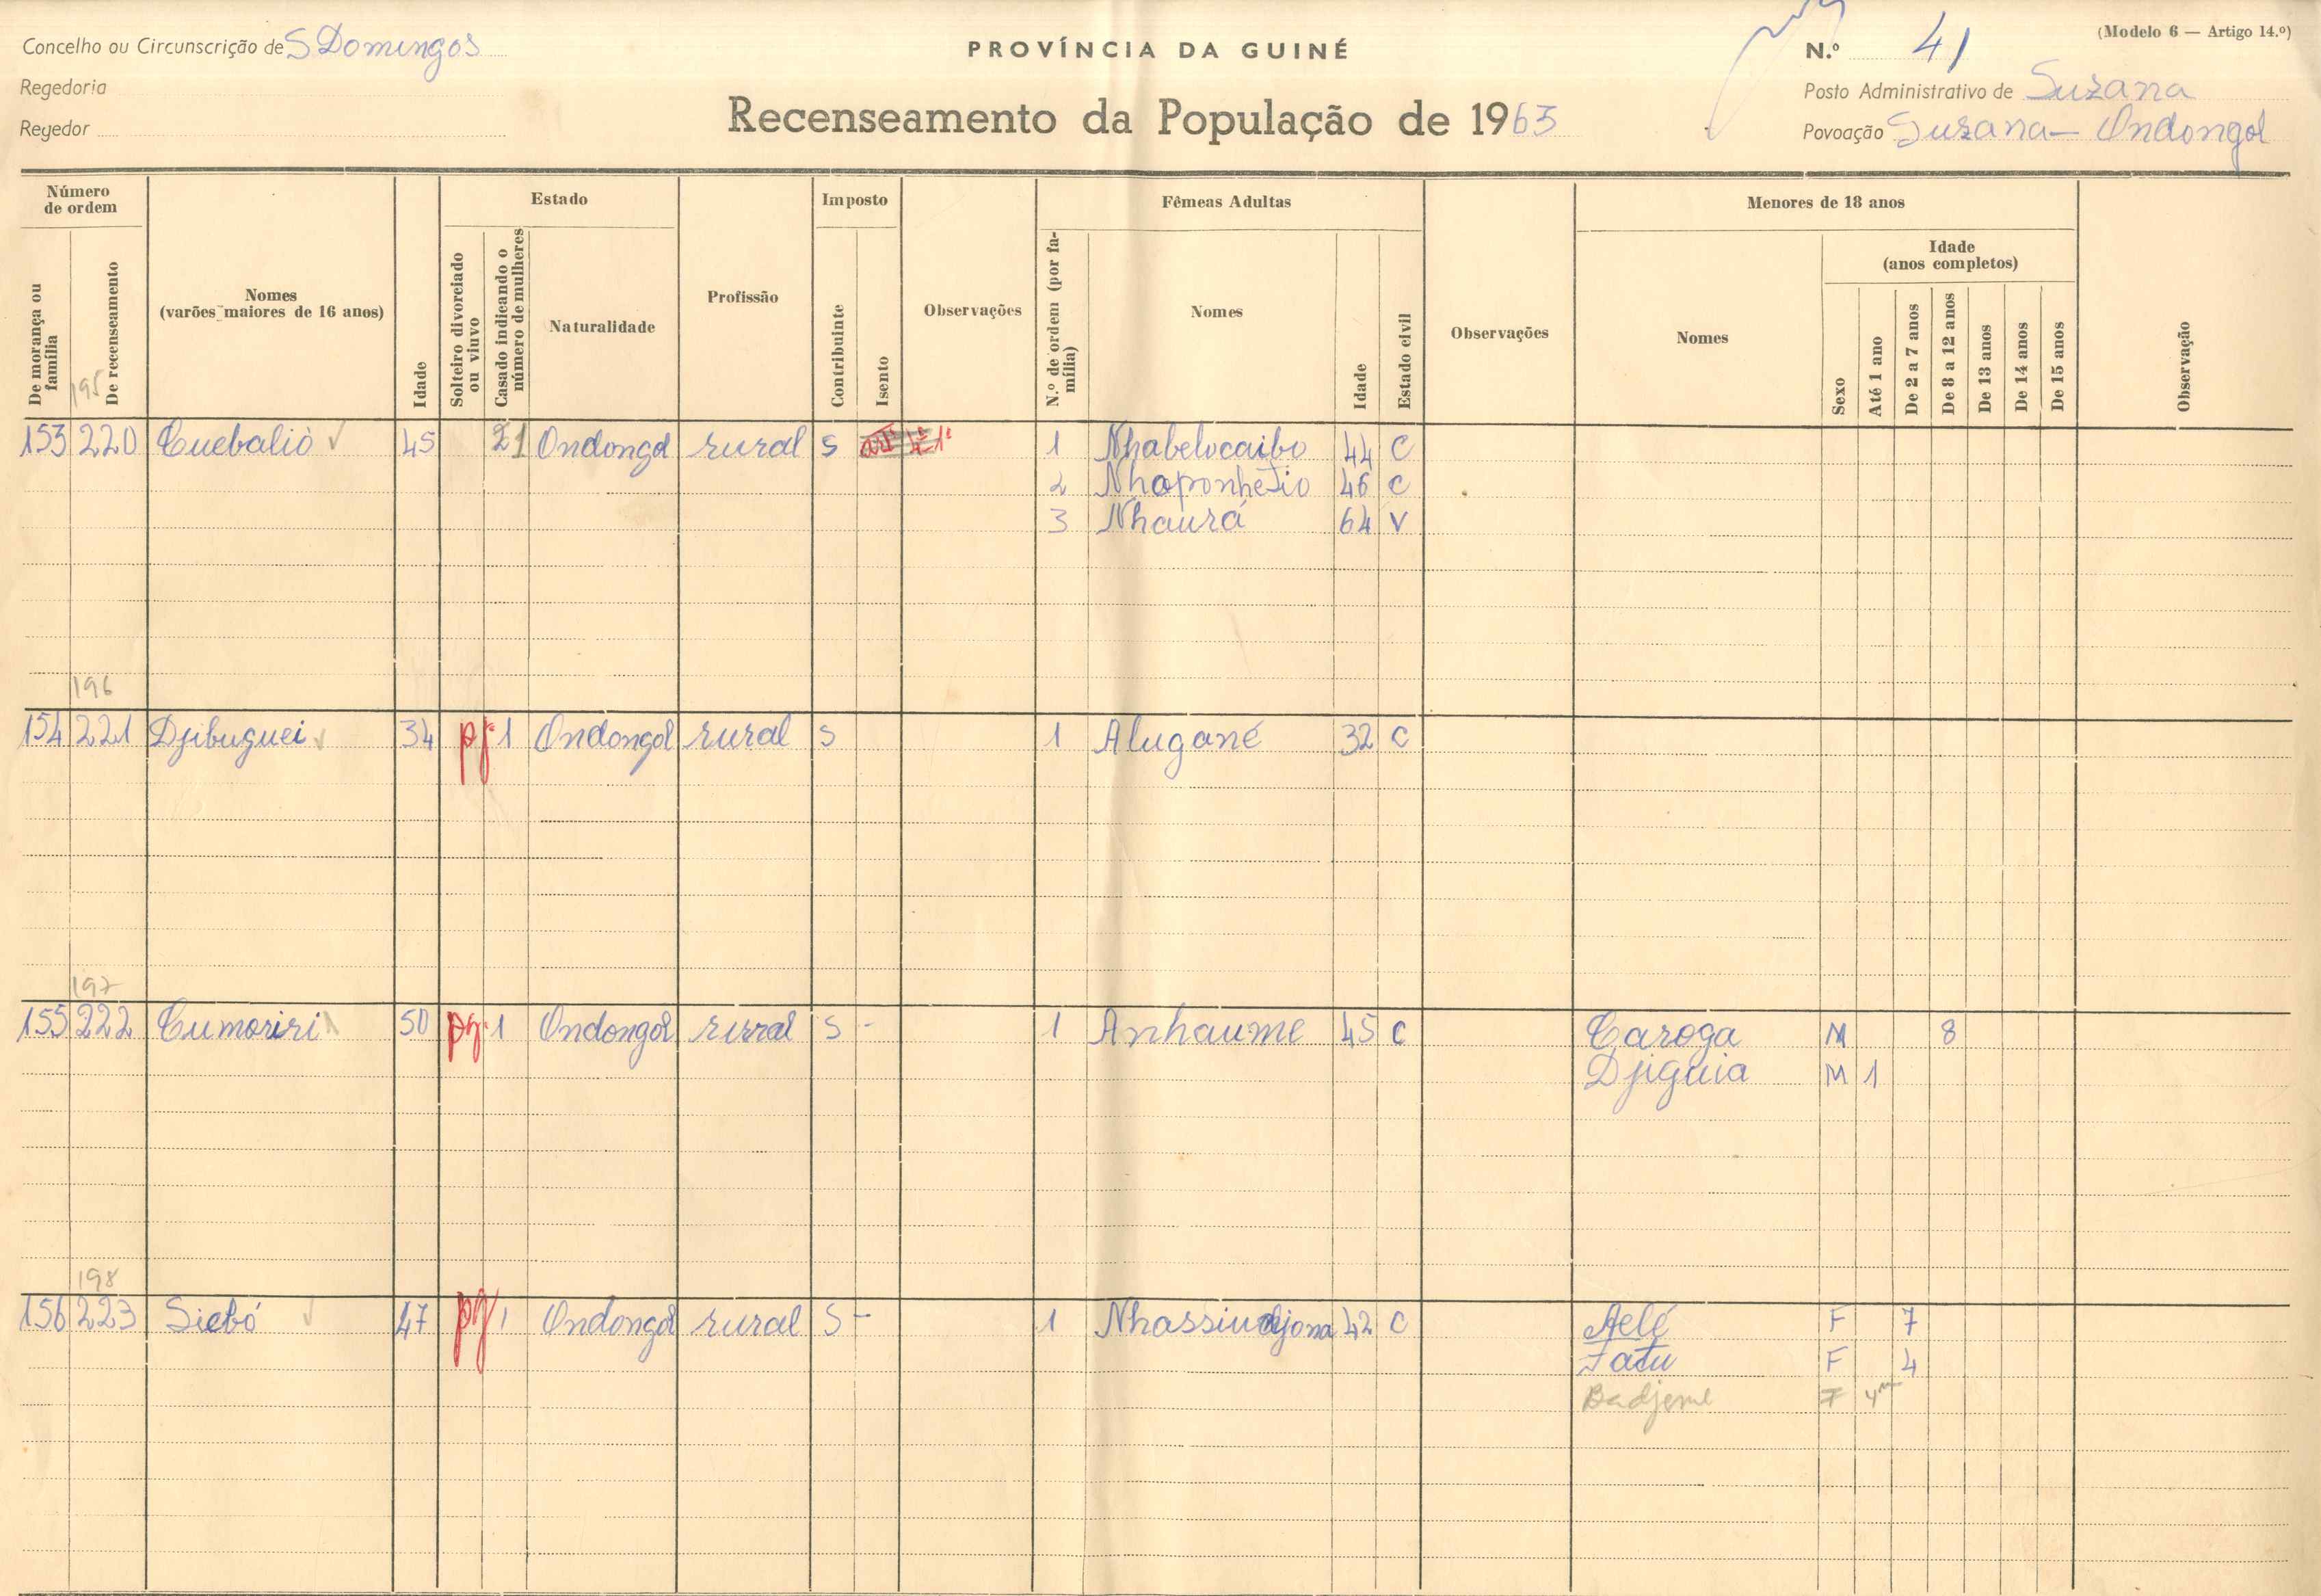 Concelho ou Circunscrição de S Domingos
PROVÍNCIA DA GUINÉ
N.º 41
(Modelo 6 — Artigo 14.º)
Regedoria
Posto Administrativo de Suzana
Regedor
Recenseamento da População de 1963
Povoação Suzana - Ondongol
Número de ordem
Estado
Imposto
Fêmeas Adultas
Menores de 18 anos
De morança ou família
De recenseamento
Nomes (varões maiores de 16 anos)
Idade
Solteiro divorciado ou viuvo
Casado indicando o número de mulheres
Naturalidade
Profissão
Contribuinte
Isento
Observações
N.º de ordem (por família)
Nomes
Idade
Estado civil
Observações
Nomes
Sexo
Idade (anos completos)
Até 1 ano
De 2 a 7 anos
De 8 a 12 anos
De 13 anos
De 14 anos
De 15 anos
Observação
195
153 220 Cuebaliò 45 21 Ondongol rural S 1 Nhabelocaibo 44 C
2 Nhaponhetio 46 C
3 Nhaurá 64 V
196
154 221 Djibuguei 34 pg. 1 Ondongol rural S 1 Alugané 32 C
197
155 222 Cumoriri 50 pg. 1 Ondongol rural S - 1 Anhaume 45 C Caroga M 8
Djiguia M 1
198
156 223 Siebó 47 pg. 1 Ondongol rural S - 1 Nhassiudjona 42 C Aelé F 7
Fatu F 4
Badjeme F 4m